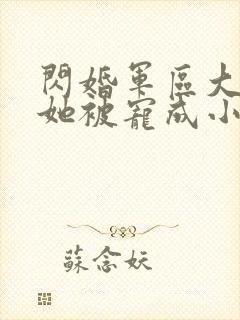 閃婚軍區大
她被寵成小
蘇念妖